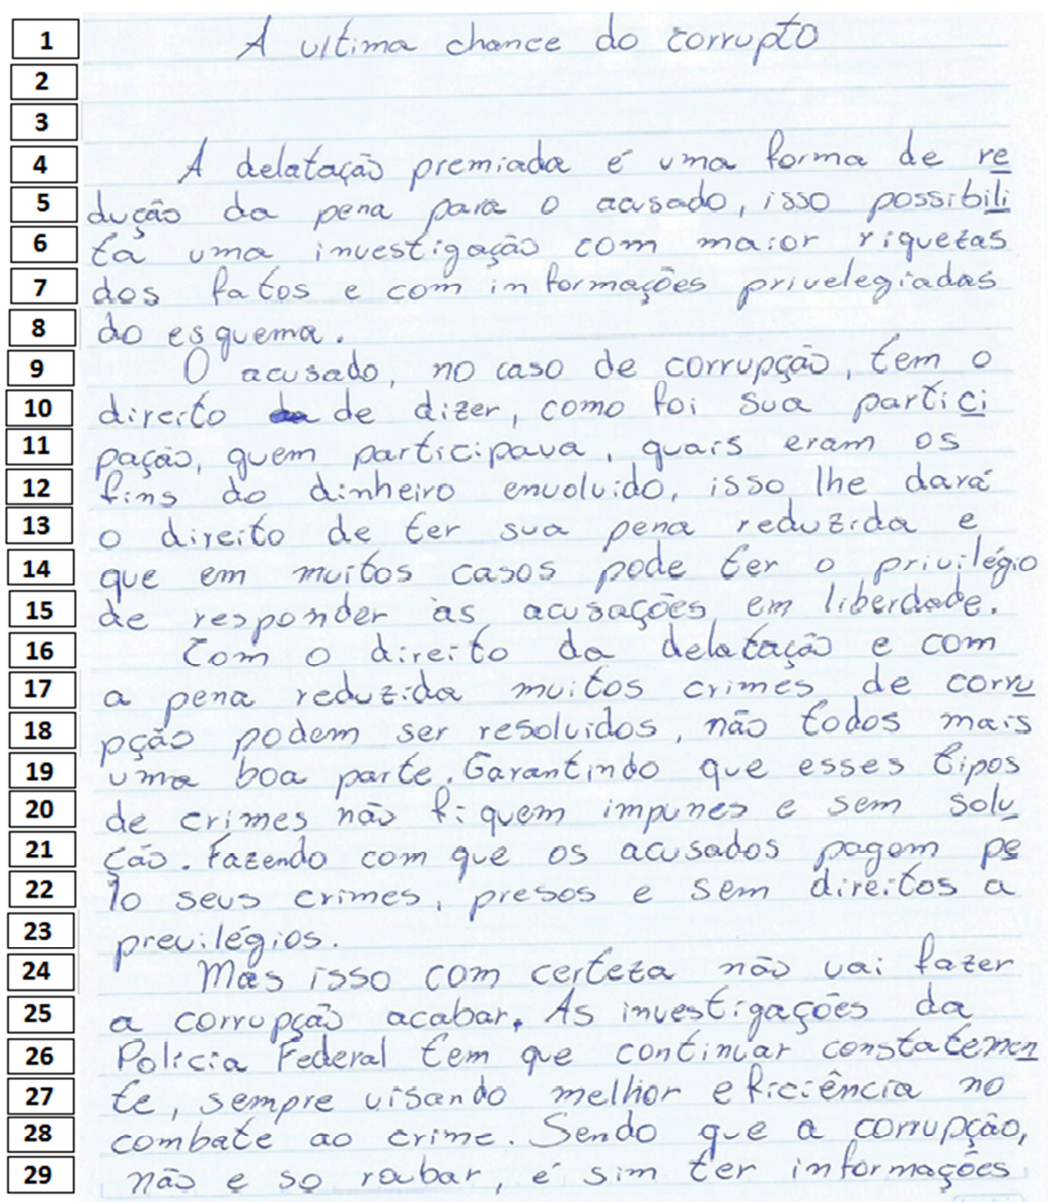 1 A ultima chance do corrupto
2
3
4 A delatação premiada é uma forma de re
5 dução da pena para o acusado, isso possibili
6 ta uma investigação com maior riquezas
7 dos fatos e com informações privelegiadas
8 do esquema.
9 O acusado, no caso de corrupção, tem o
10 direito de dizer, como foi sua partici
11 pação, quem participava, quais eram os
12 fins do dinheiro envolvido, isso lhe dará
13 o direito de ter sua pena reduzida e
14 que em muitos casos pode ter o privilégio
15 de responder às acusações em liberdade.
16 Com o direito da delatação e com
17 a pena reduzida muitos crimes de corru
18 pção podem ser resolvidos, não todos mais
19 uma boa parte. Garantindo que esses tipos
20 de crimes não fiquem impunes e sem solu
21 ção. Fazendo com que os acusados pagem pe
22 lo seus crimes, presos e sem direitos a
23 previlégios.
24 Mas isso com certeza não vai fazer
25 a corrupção acabar. As investigações da
26 Polícia Federal tem que continuar constatemen
27 te, sempre visando melhor eficiência no
28 combate ao crime. Sendo que a corrupção,
29 não e so roubar, é sim ter informações